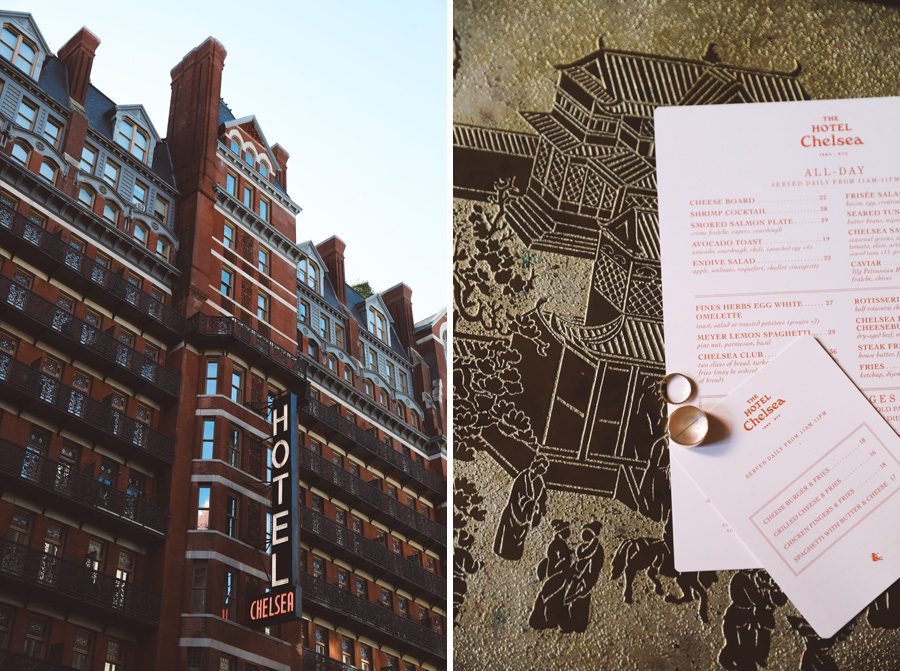 HOTEL
CHELSEA
THE
HOTEL
Chelsea
1884 • NYC
ALL-DAY
SERVED DAILY FROM 11AM-11PM
CHEESE BOARD 22
SHRIMP COCKTAIL 28
SMOKED SALMON PLATE 29
crème fraîche, capers, sourdough
AVOCADO TOAST 19
avocado, sourdough, chili, (poached egg +4)
ENDIVE SALAD 22
apple, walnuts, roquefort, shallot vinaigrette
FRISÉE SALA
bacon, egg, croûtons
SEARED TUN
butter beans, niçois
CHELSEA SA
seasonal greens,
tomato, olive,
CAVIAR
Petrossian
fraîche, chives
FINES HERBS EGG WHITE ...... 27
OMELETTE
toast, salad or roasted potatoes (gruyère +2)
MEYER LEMON SPAGHETTI ... 29
pine nut, parmesan, basil
CHELSEA CLUB
two slices of bread, turke
fries (may be ordered
of bread)
ROTISSERI
half rotisserie
CHELSEA
CHEESEBU
dry-aged beef,
STEAK FRI
house butter,
FRIES
ketchup, dijon
GES
THE
HOTEL
Chelsea
1884 • NYC
SERVED DAILY FROM 11AM-11PM
CHEESE BURGER & FRIES ... 18
GRILLED CHEESE & FRIES ... 16
CHICKEN FINGERS & FRIES ... 18
SPAGHETTI WITH BUTTER & CHEESE . 17